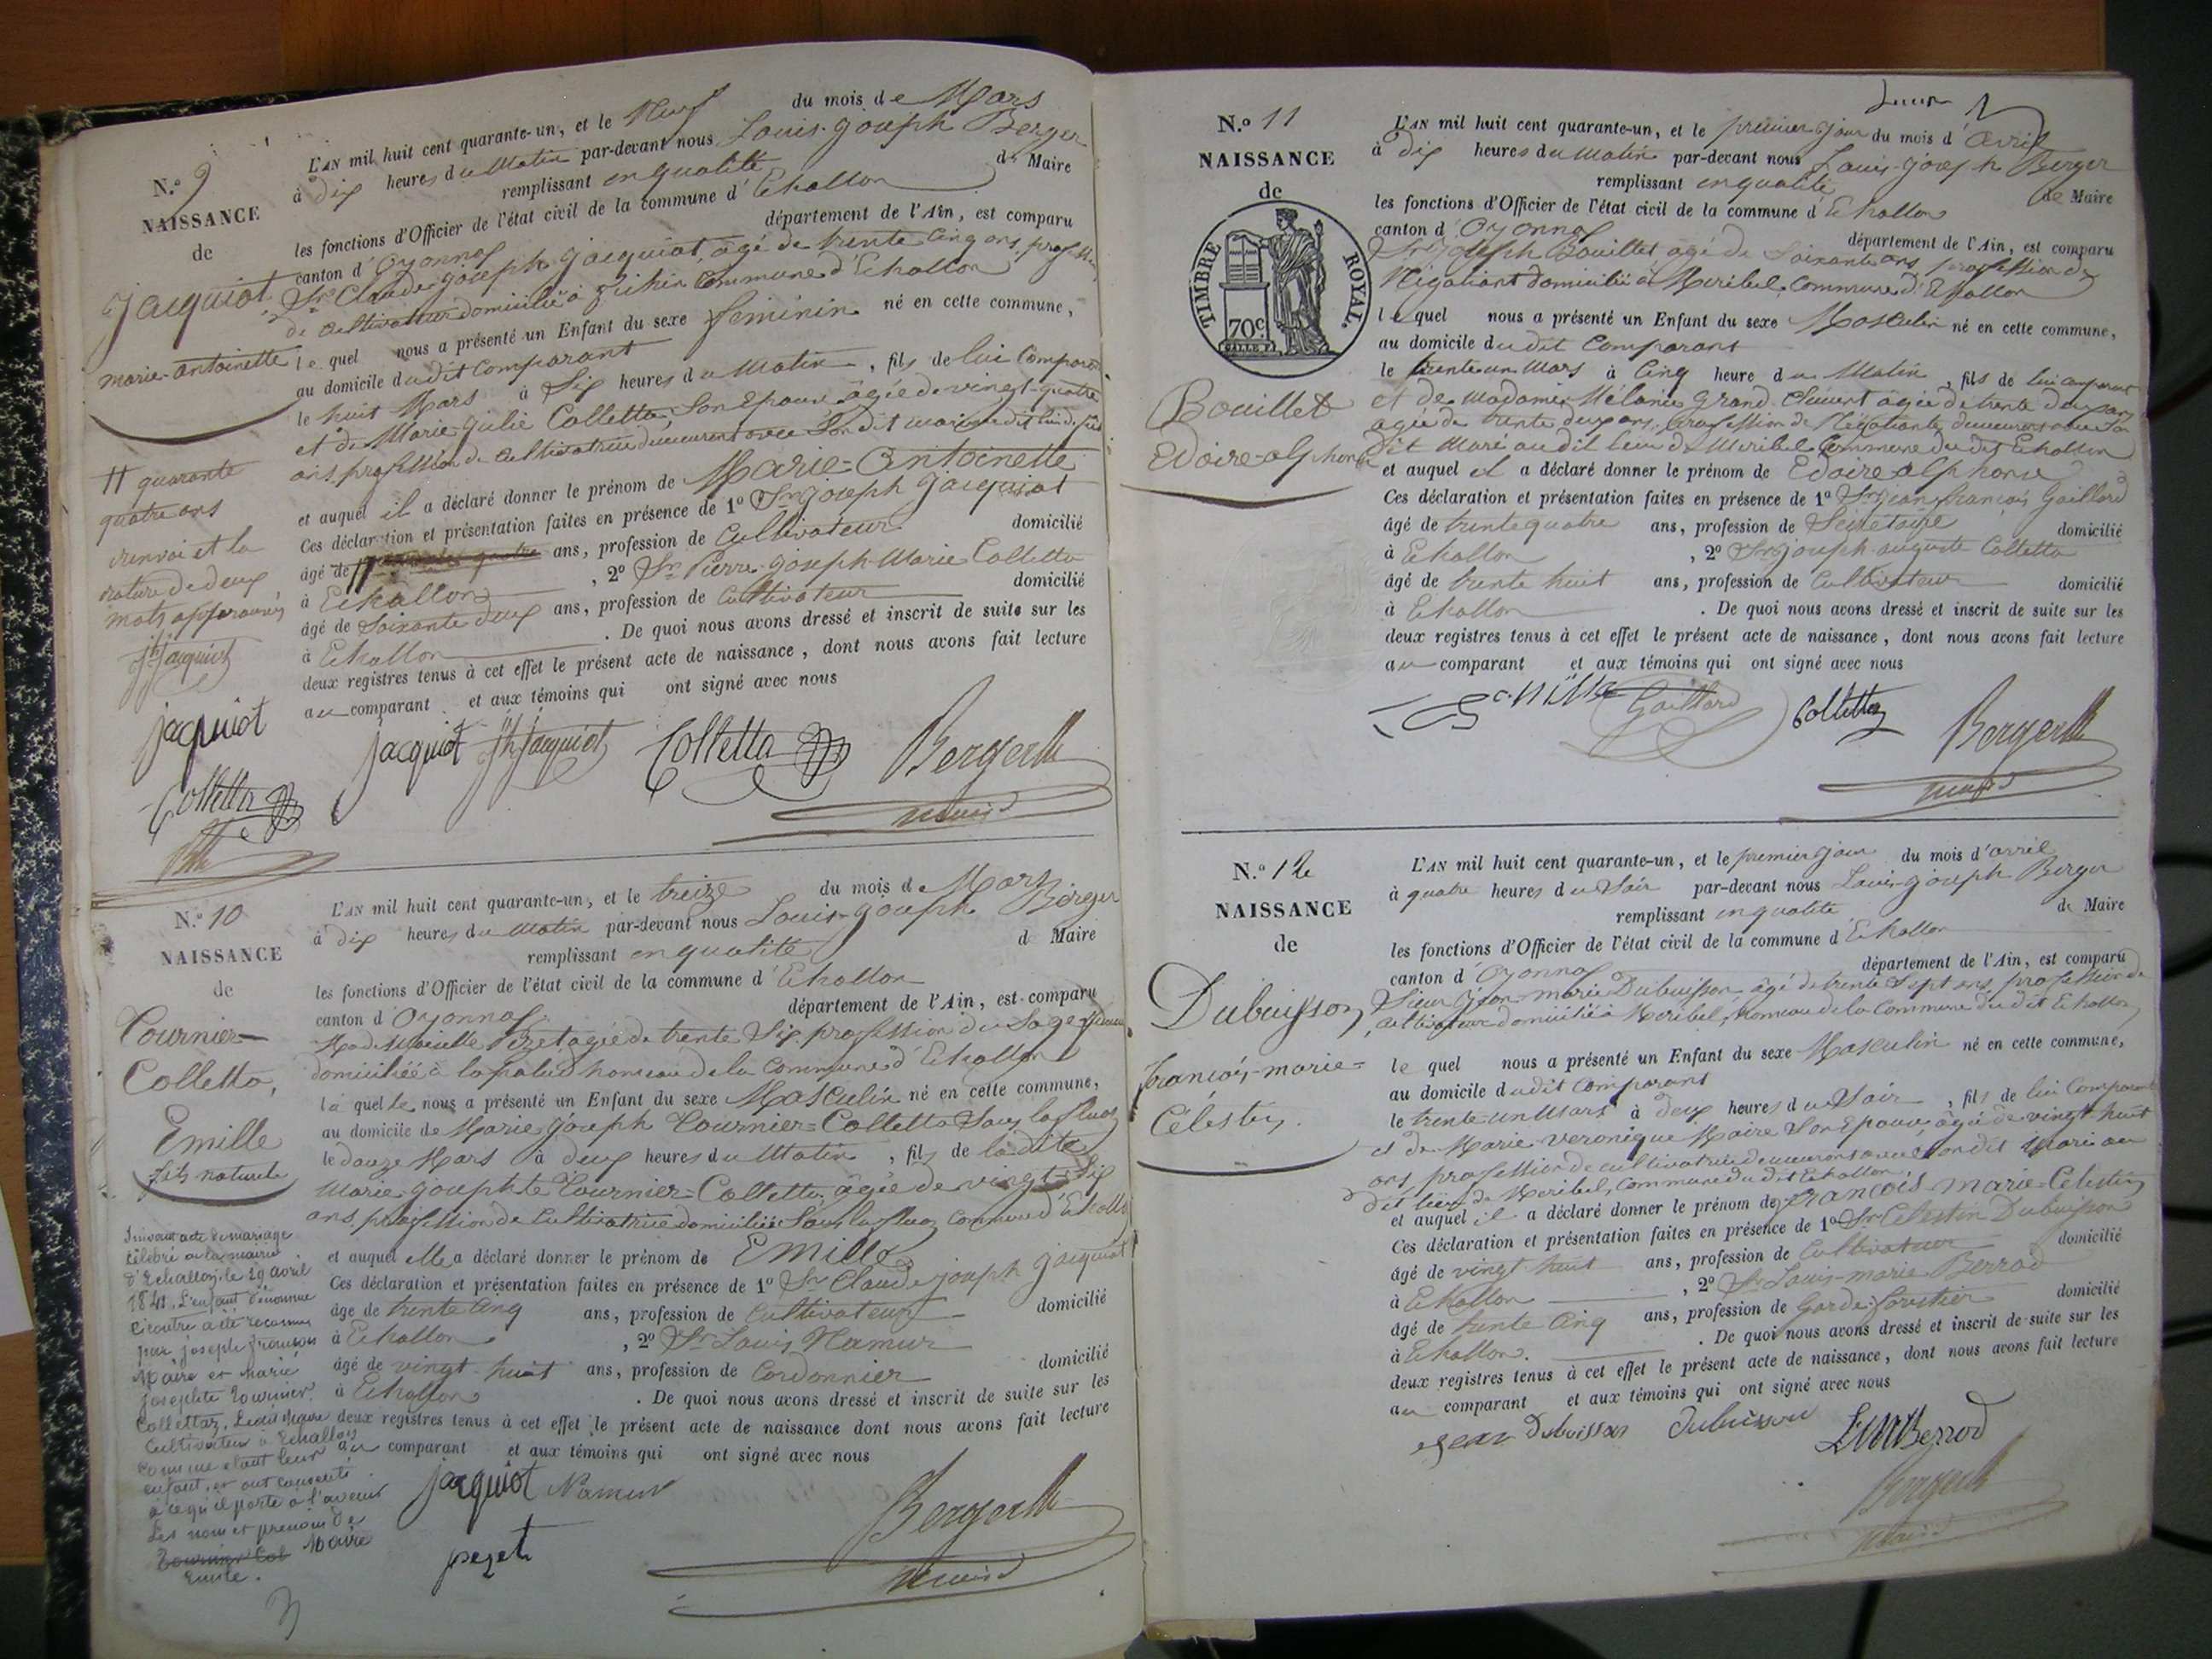 N.º 9
NAISSANCE
de
Jacquiot
marie-antoinette
L'AN mil huit cent quarante-un, et le Neuf du mois de Mars
à dix heures du Matin par-devant nous Louis-Joseph Berger
remplissant en qualité de Maire
les fonctions d'Officier de l'état civil de la commune d'Echallon
canton d'Oyonnax département de l'Ain, est comparu
Sr Claude-Joseph Jacquiot, âgé de trente cinq ans, profession
de cultivateur domicilié à commune d'Echallon
le quel nous a présenté un Enfant du sexe féminin né en cette commune,
au domicile dudit Comparant
le huit Mars à Six heures du Matin, fils de lui Comparant
et de Marie-Julie Colletta, Son Epouse âgée de vingt-quatre
ans profession de Cultivatrice demeurant avec Son dit mari
et auquel il a déclaré donner le prénom de Marie-Antoinette
Ces déclaration et présentation faites en présence de 1º Sr Joseph Jacquiot
âgé de ans, profession de Cultivateur domicilié
à Echallon, 2º Sr Pierre-Joseph-Marie Colletta
âgé de Soixante deux ans, profession de Cultivateur domicilié
à Echallon. De quoi nous avons dressé et inscrit de suite sur les
deux registres tenus à cet effet le présent acte de naissance, dont nous avons fait lecture
au comparant et aux témoins qui ont signé avec nous
quarante
quatre ans
renvoi et la
rature de deux
mots approuvés
Jh Jacquiot
jacquiot
Colletta
jacquiot Jh Jacquiot Colletta Berger
maire
N.º 10
NAISSANCE
de
Tournier-
Colletta,
Emille
fils naturele
L'AN mil huit cent quarante-un, et le treize du mois de Mars
à dix heures du Matin par-devant nous Louis-Joseph Berger
remplissant en qualité d Maire
les fonctions d'Officier de l'état civil de la commune d'Echallon
canton d'Oyonnax département de l'Ain, est comparu
Mademoiselle Pezet agée de trente Six, profession de Sage femme
domiciliée à lapalud hameau de la Commune d'Echallon
la quelle nous a présenté un Enfant du sexe Masculin né en cette commune,
au domicile de Marie Joseph Tournier-Colletta Sous
le douze Mars à deux heures du Matin, fils de ladite
Marie-Josephte Tournier-Colletta, âgée de vingt Six
ans, profession de Cultivatrice domiciliée Sous commune d'Echallon
et auquel elle a déclaré donner le prénom de Emille
Ces déclaration et présentation faites en présence de 1º Sr Claude-joseph Jacquiot
âgé de trente Cinq ans, profession de Cultivateur domicilié
à Echallon, 2º Sr Louis Namur
âgé de vingt-huit ans, profession de Cordonnier domicilié
à Echallon. De quoi nous avons dressé et inscrit de suite sur les
deux registres tenus à cet effet le présent acte de naissance dont nous avons fait lecture
au comparant et aux témoins qui ont signé avec nous
Suivant acte de mariage
célébré à la mairie
d'Echallon, le 29 avril
1841. L'enfant dénommé
ci contre a été reconnu
par joseph françois
Maire et Marie
josephte Tournier
Collettaz, Ledit Maire
cultivateur à Echallon
comme étant leur
enfant, et ont consenti
à ce qu'il porte à l'avenir
les nom et prenom de
Tournier Col Maire
Emile.
jacquiot Namur
pezet
Berger
maire
3
N.º 11
NAISSANCE
de
TIMBRE ROYAL.
70c
Bouillet
Edoire-alphonse
L'AN mil huit cent quarante-un, et le premier jour du mois d'avril
à dix heures du Matin par-devant nous Louis-Joseph Berger
remplissant en qualité de Maire
les fonctions d'Officier de l'état civil de la commune d'Echallon
canton d'Oyonnax département de l'Ain, est comparu
Sr Joseph Bouillet âgé de Soixante ans, profession de
Négotiant domicilié à Meribel, Commune d'Echallon
le quel nous a présenté un Enfant du sexe Masculin né en cette commune,
au domicile dudit Comparant
le trente un Mars à Cinq heure du Matin, fils de lui comparant
et de Madame Mélanie Grand-Clément âgée de trente deux ans
agée de trente deux ans, profession de Négotiante, demeurant avec son
dit Mari au dit lieu de Meribel Commune du dit Echallon
et auquel il a déclaré donner le prénom de Edoire alphonse
Ces déclaration et présentation faites en présence de 1º Sr Jean-françois Gaillard
âgé de trente quatre ans, profession de Secretaire domicilié
à Echallon, 2º Sr joseph-auguste Colletta
âgé de trente huit ans, profession de Cultivateur domicilié
à Echallon. De quoi nous avons dressé et inscrit de suite sur les
deux registres tenus à cet effet le présent acte de naissance, dont nous avons fait lecture
au comparant et aux témoins qui ont signé avec nous
Gaillard Colletta Berger
maire
N.º 12
NAISSANCE
de
Dubuisson
françois-marie-
Célestin
L'AN mil huit cent quarante-un, et le premier jour du mois d'avril
à quatre heures du Soir par-devant nous Louis-Joseph Berger
remplissant en qualité de Maire
les fonctions d'Officier de l'état civil de la commune d Echallon
canton d'Oyonnax département de l'Ain, est comparu
Sieur Jean-marie Dubuisson âgé de trente Sept ans, profession de
cultivateur domicilié à Meribel, hameau de la Commune du dit Echallon,
le quel nous a présenté un Enfant du sexe Masculin né en cette commune,
au domicile dudit Comparant
le trente-un Mars à deux heures du Soir, fils de lui Comparant
et de Marie-Veronique Maire Son Epouse, âgée de vingt huit
ans profession de cultivatrice demeurant avec Son dit Mari au
dit lieu de Meribel, Commune du dit Echallon,
et auquel il a déclaré donner le prénom de françois marie-Célestin
Ces déclaration et présentation faites en présence de 1º Sr Célestin Dubuisson
âgé de vingt-huit ans, profession de Cultivateur domicilié
à Echallon, 2º Sr Louis-marie Berrod
âgé de trente Cinq ans, profession de Garde-forestier domicilié
à Echallon. De quoi nous avons dressé et inscrit de suite sur les
deux registres tenus à cet effet le présent acte de naissance, dont nous avons fait lecture
au comparant et aux témoins qui ont signé avec nous
jean Dubuisson Dubuisson LMBerrod
Berger
maire